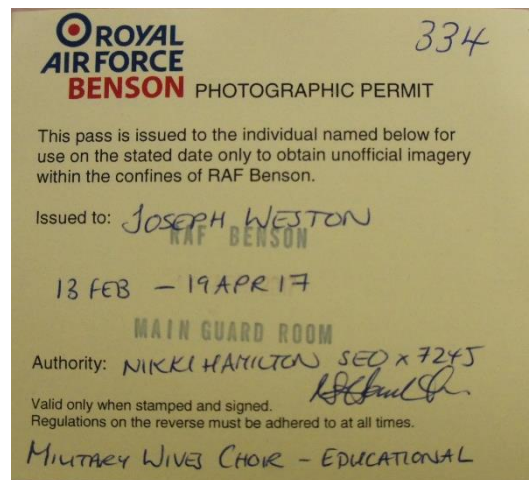 ROYAL
AIR FORCE
BENSON PHOTOGRAPHIC PERMIT
334
This pass is issued to the individual named below for
use on the stated date only to obtain unofficial imagery
within the confines of RAF Benson.
Issued to: JOSEPH WESTON
RAF BENSON
13 FEB – 19 APR 17
MAIN GUARD ROOM
Authority: NIKKI HAMILTON SEO x 7245
Valid only when stamped and signed.
Regulations on the reverse must be adhered to at all times.
MILITARY WIVES CHOIR – EDUCATIONAL